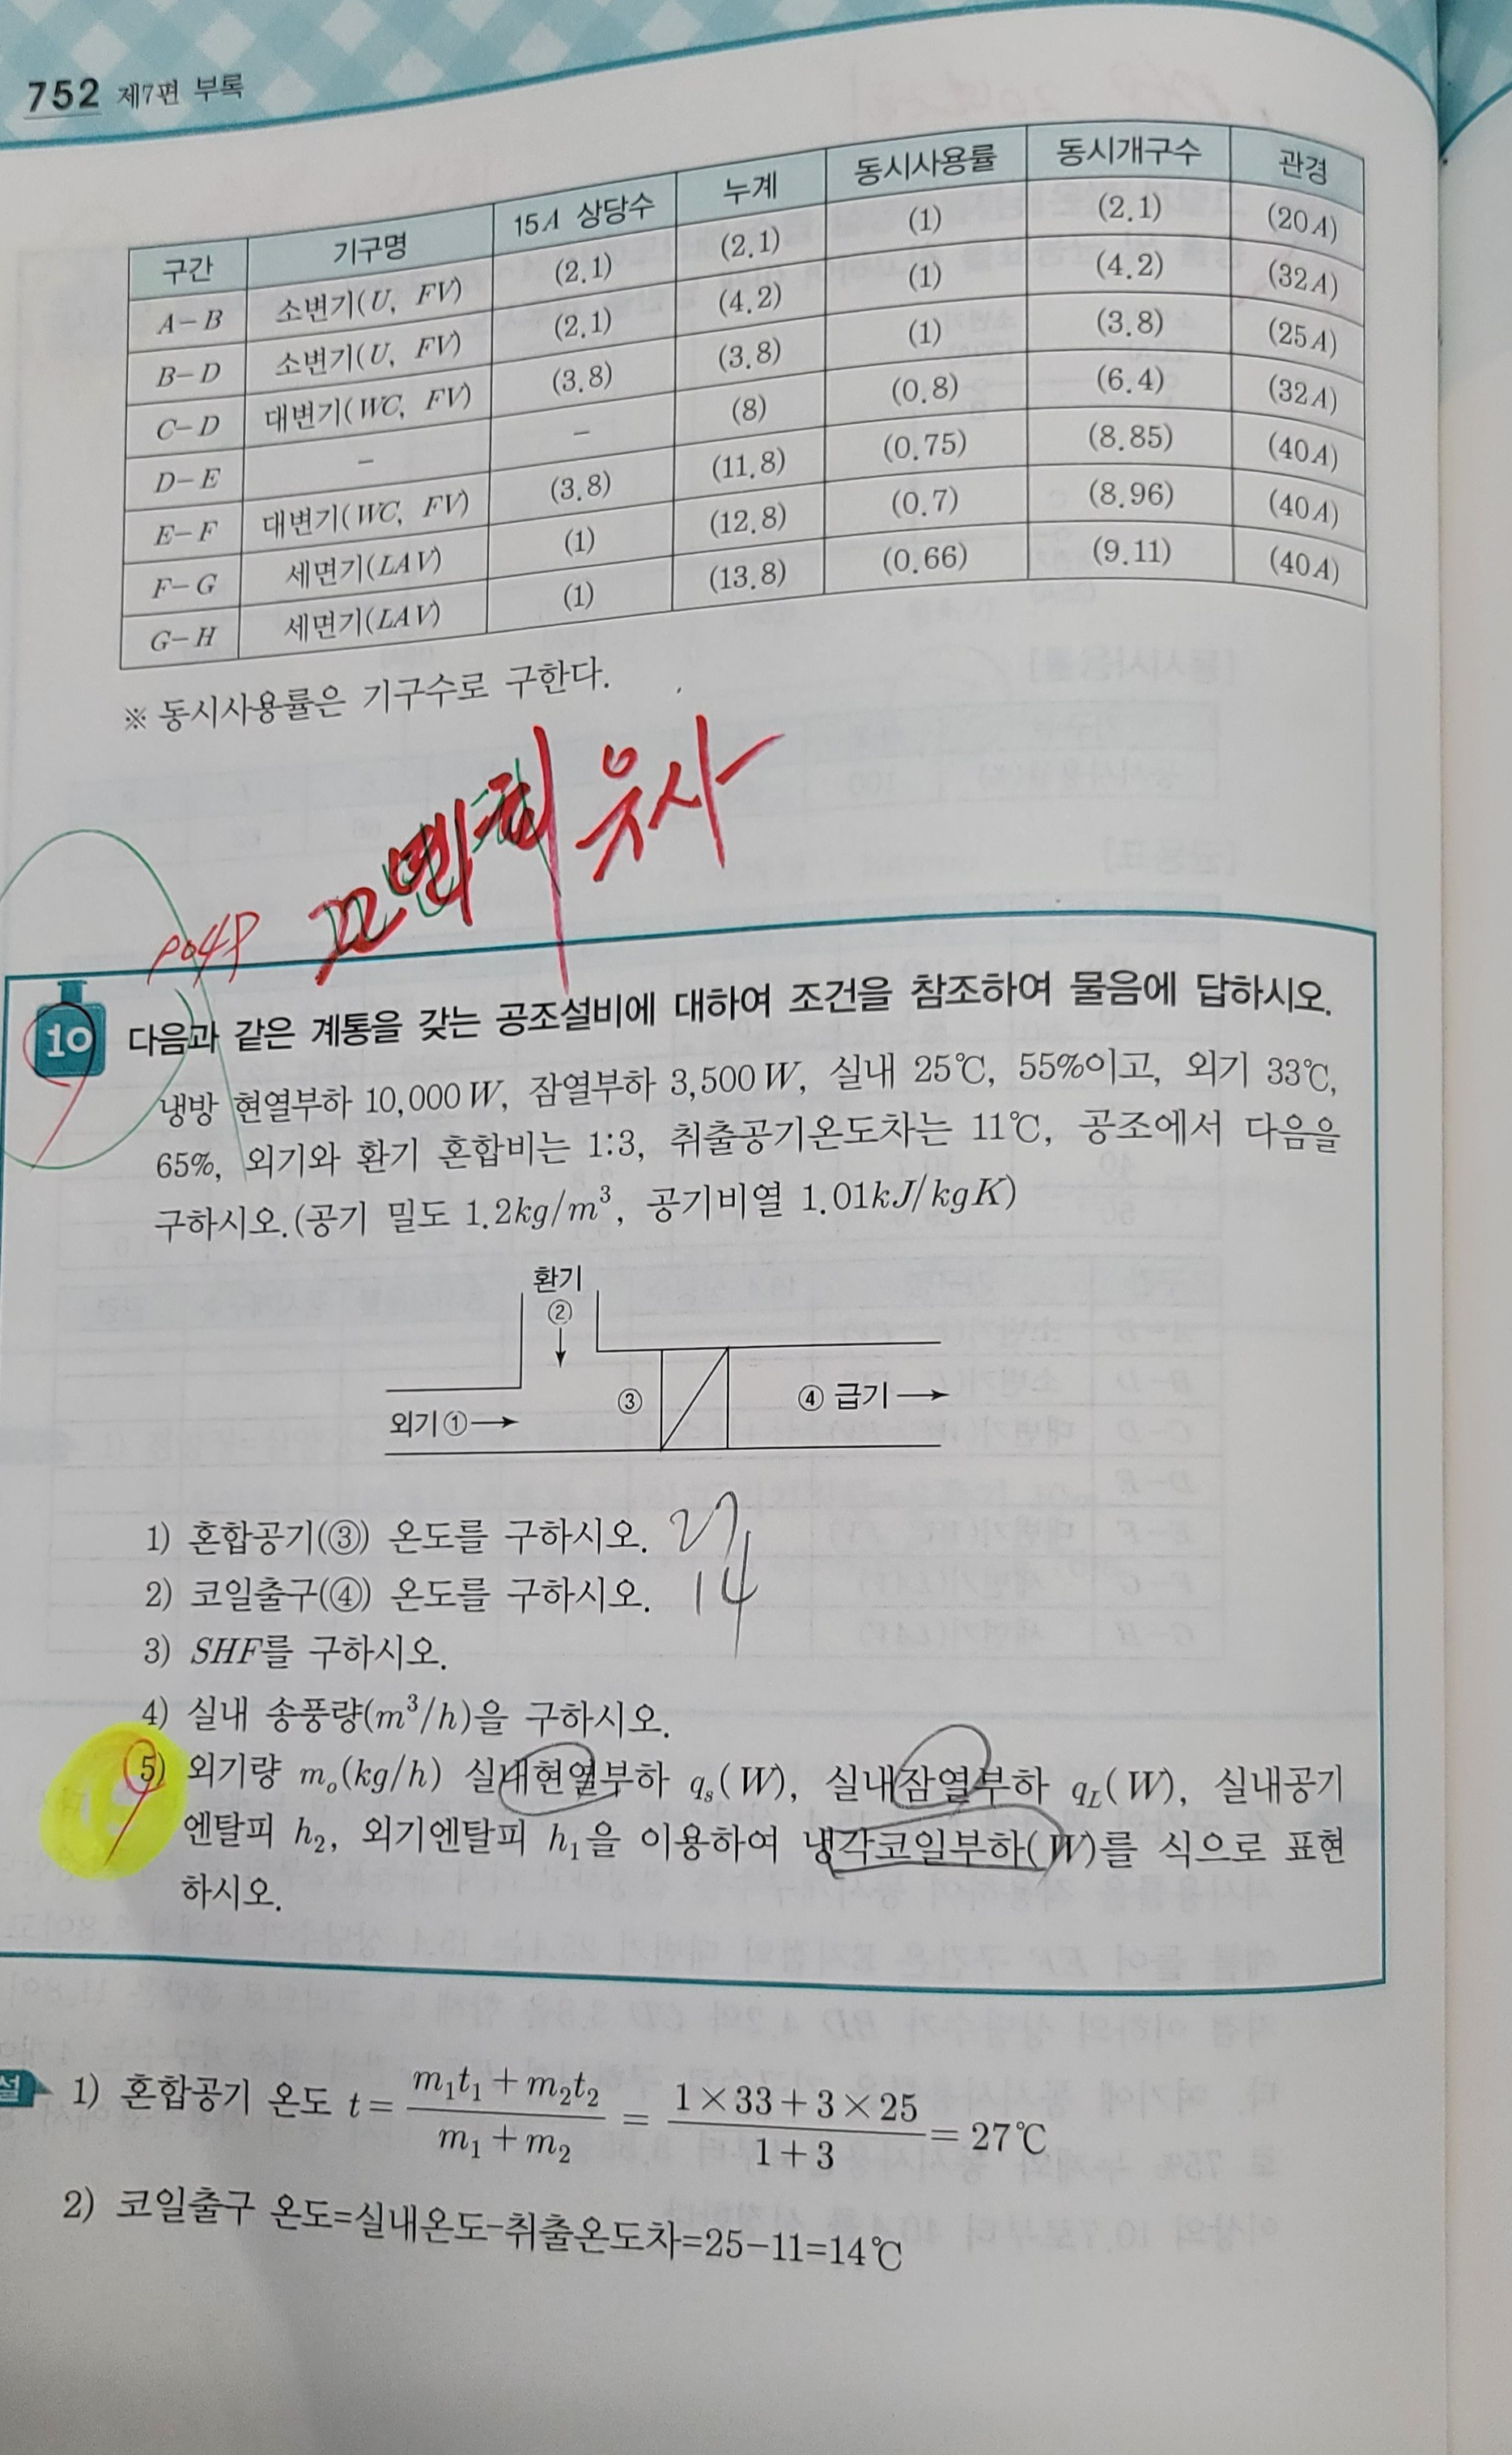 752 제7편 부록
구간 기구명 15A 상당수 누계 동시사용률 동시개구수 관경
A-B 소변기(U, FV) (2.1) (2.1) (1) (2.1) (20A)
B-D 소변기(U, FV) (2.1) (4.2) (1) (4.2) (32A)
C-D 대변기(WC, FV) (3.8) (3.8) (1) (3.8) (25A)
D-E - - (8) (0.8) (6.4) (32A)
E-F 대변기(WC, FV) (3.8) (11.8) (0.75) (8.85) (40A)
F-G 세면기(LAV) (1) (12.8) (0.7) (8.96) (40A)
G-H 세면기(LAV) (1) (13.8) (0.66) (9.11) (40A)
※ 동시사용률은 기구수로 구한다.
유사
10 다음과 같은 계통을 갖는 공조설비에 대하여 조건을 참조하여 물음에 답하시오.
냉방 현열부하 10,000W, 잠열부하 3,500W, 실내 25℃, 55%이고, 외기 33℃,
65%, 외기와 환기 혼합비는 1:3, 취출공기온도차는 11℃, 공조에서 다음을
구하시오.(공기 밀도 1.2kg/m³, 공기비열 1.01kJ/kgK)
환기
②
③
④ 급기
외기 ①
1) 혼합공기(③) 온도를 구하시오. 27
2) 코일출구(④) 온도를 구하시오. 14
3) SHF를 구하시오.
4) 실내 송풍량(m³/h)을 구하시오.
5) 외기량 mₒ(kg/h) 실내현열부하 qₛ(W), 실내잠열부하 q_L(W), 실내공기
엔탈피 h₂, 외기엔탈피 h₁을 이용하여 냉각코일부하(W)를 식으로 표현
하시오.
설 1) 혼합공기 온도 t = (m₁t₁+m₂t₂)/(m₁+m₂) = (1×33+3×25)/(1+3) = 27℃
2) 코일출구 온도=실내온도-취출온도차=25-11=14℃